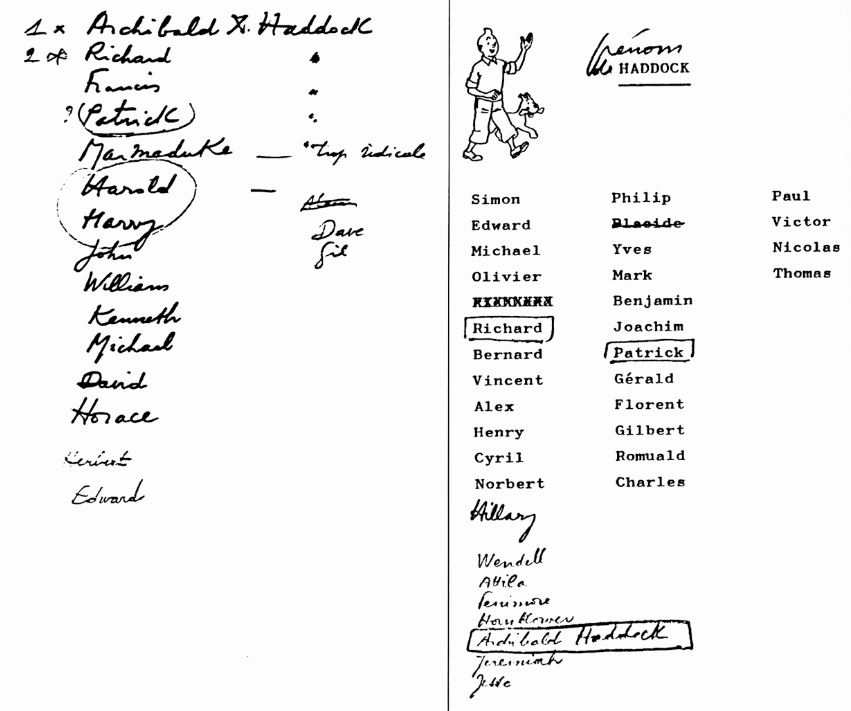 1 x Archibald X. Haddock
2 x Richard "
Francis "
? (Patrick) "
Marmaduke — "trop ridicule
Harold —
Harry Dave
John Gil
Williams
Kenneth
Michael
David
Horace
Herbert
Edward
Prénoms
de HADDOCK
Simon Philip Paul
Edward Placide Victor
Michael Yves Nicolas
Olivier Mark Thomas
Benjamin
Richard Joachim
Bernard Patrick
Vincent Gérald
Alex Florent
Henry Gilbert
Cyril Romuald
Norbert Charles
Hillary
Wendell
Attila
Fenimore
Hornblower
Archibald Haddock
Jeremiah
Jesse